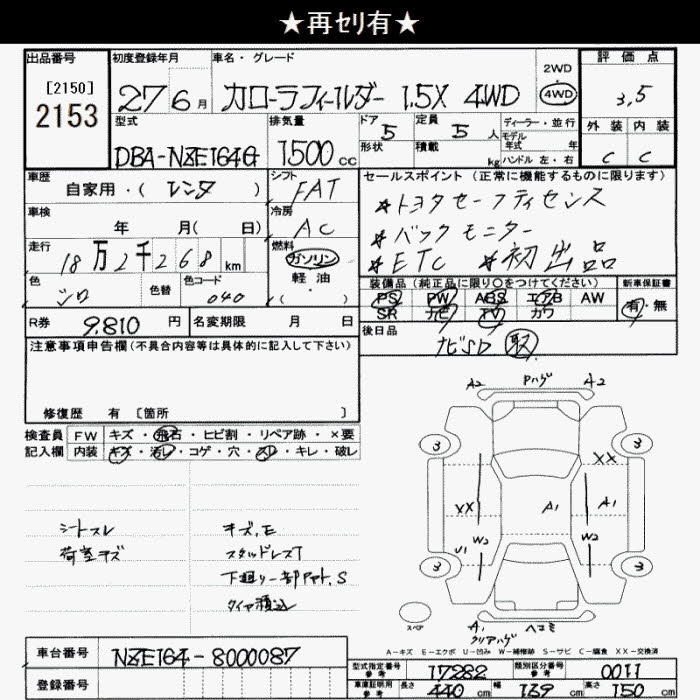 ★再ｾﾘ有★
出品番号 初度登録年月 車名・グレード 2WD 評価点
[2150]
2153
27 6月 カローラフィールダー 1.5X 4WD 4WD 3.5
型式 排気量 ドア 定員 ディーラー・並行 外装 内装
DBA-NZE164G 1500cc 5 5人 モデル年式 年 C C
形状 積載 kg ハンドル 左・右
車歴 自家用・( レンタ ) シフト FAT
車検 年 月( 日) 冷房 AC
走行 18万2千268km 燃料 ガソリン
色 シロ 色替 色コード 040 軽油 ( )
R券 9.810円 名変期限 月 日
セールスポイント(正常に機能するものに限ります)
*トヨタセーフティセンス
*バックモニター
*ETC *初出品
装備品(純正品に限り○をつけてください) 新車保証書
PS PW ABS エアB AW 有・無
SR ナビ TV カワ
後日品
ナビSD 取
注意事項申告欄(不具合内容等は具体的に記入して下さい)
修復歴 有 [箇所 ]
検査員 FW キズ・飛石・ヒビ割・リペア跡・×要
記入欄 内装 キズ・汚レ・コゲ・穴・スレ・キレ・破レ
シートスレ キズ,E
荷室キズ スタッドレスT
下廻り一部アト,S
タイヤ積込
A2 Pハゲ A2
3 3
XX
XX A1 A1
W2 W2
U1
3 3
スペア
A1 ヘコミ
クリアハゲ
A-キズ E-エクボ U-凹み W-補修跡 S-サビ C-腐食 XX-交換済
車台番号 NZE164-8000087
登録番号
型式指定番号 参考 17282 類別区分番号 参考 0011
車庫証明用 参考 長さ 440cm 幅 169cm 高さ 150cm